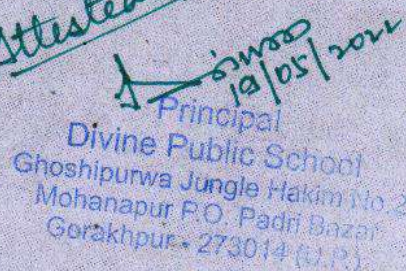 Attested
19/05/2022
Principal
Divine Public School
Ghoshipurwa Jungle Hakim No.2
Mohanapur P.O. Padri Bazar
Gorakhpur - 273014 (U.P.)